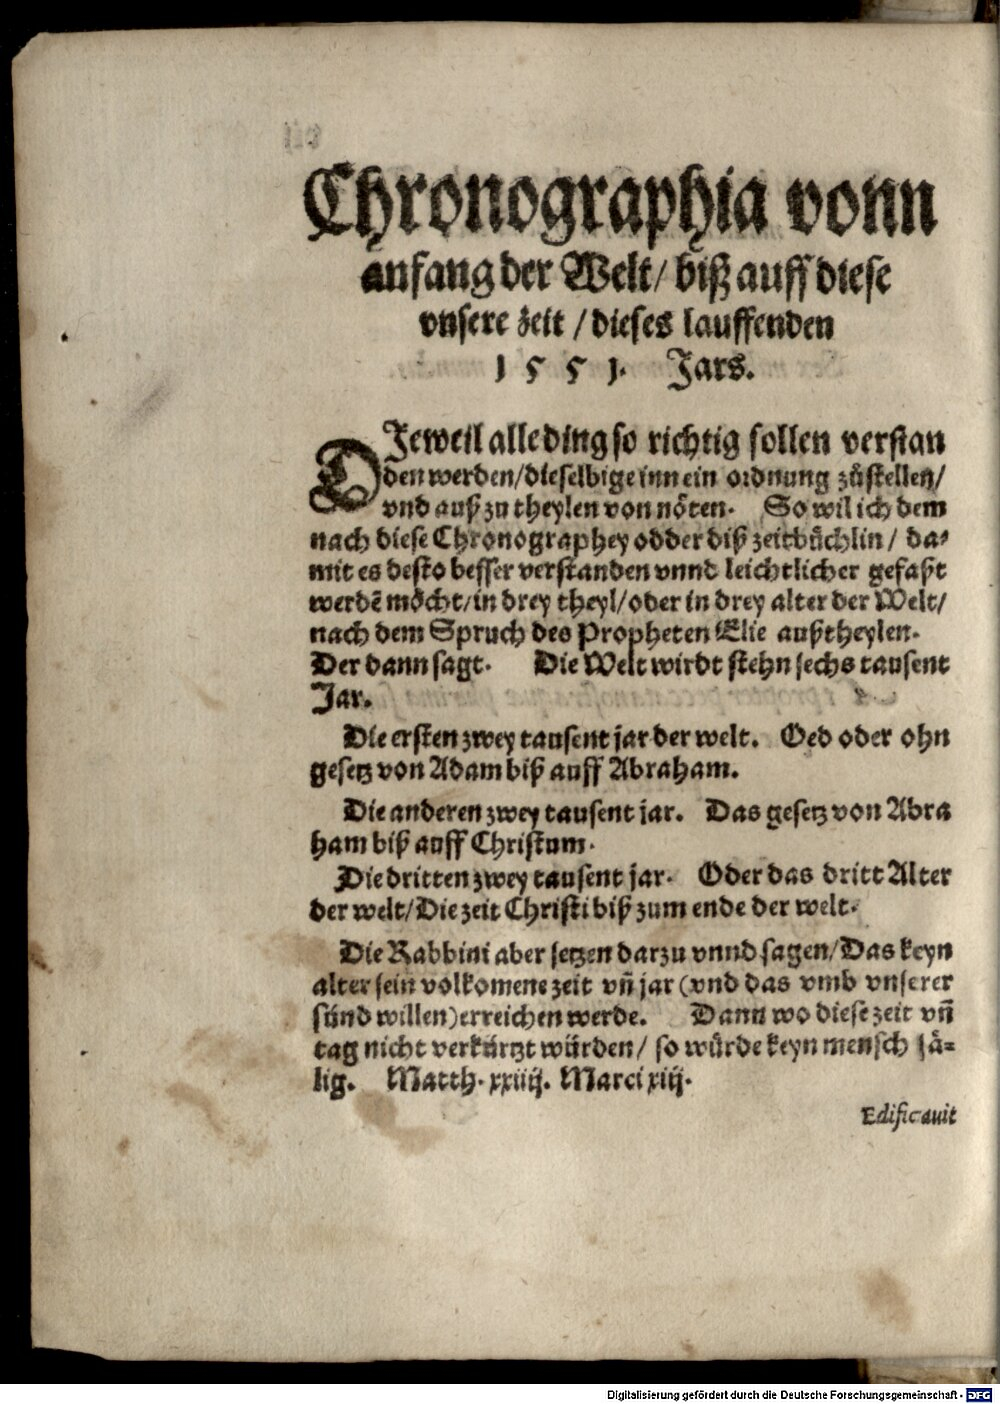 Chronographia vonn
anfang der Welt/ biß auff diese
vnsere zeit / dieses lauffenden
1 5 5 1. Jars.
DJeweil alle ding so richtig sollen verstan
den werden/dieselbige inn ein ordnung zůstellen/
vnd auß zu theylen von nöten. So wil ich dem
nach diese Chronographey odder diß zeitbüchlin / da-
mit es desto besser verstanden vnnd leichtlicher gefaßt
werdē möcht/in drey theyl/oder in drey alter der Welt/
nach dem Spruch des Propheten Elie außtheylen.
Der dann sagt. Die Welt wirdt stehn sechs tausent
Jar.
Die ersten zwey tausent jar der welt. Oed oder ohn
gesetz von Adam biß auff Abraham.
Die anderen zwey tausent jar. Das gesetz von Abra
ham biß auff Christum.
Die dritten zwey tausent jar. Oder das dritt Alter
der welt/Die zeit Christi biß zum ende der welt.
Die Rabbini aber setzen darzu vnnd sagen/Das keyn
alter sein volkomene zeit vñ jar (vnd das vmb vnserer
sünd willen)erreichen werde. Dann wo diese zeit vñ
tag nicht verkürtzt würden/ so würde keyn mensch sä-
lig. Matth. xxiiij. Marci xiij.
Edificauit
Digitalisierung gefördert durch die Deutsche Forschungsgemeinschaft - DFG